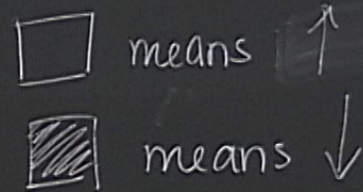 □ means ↑
■ means ↓